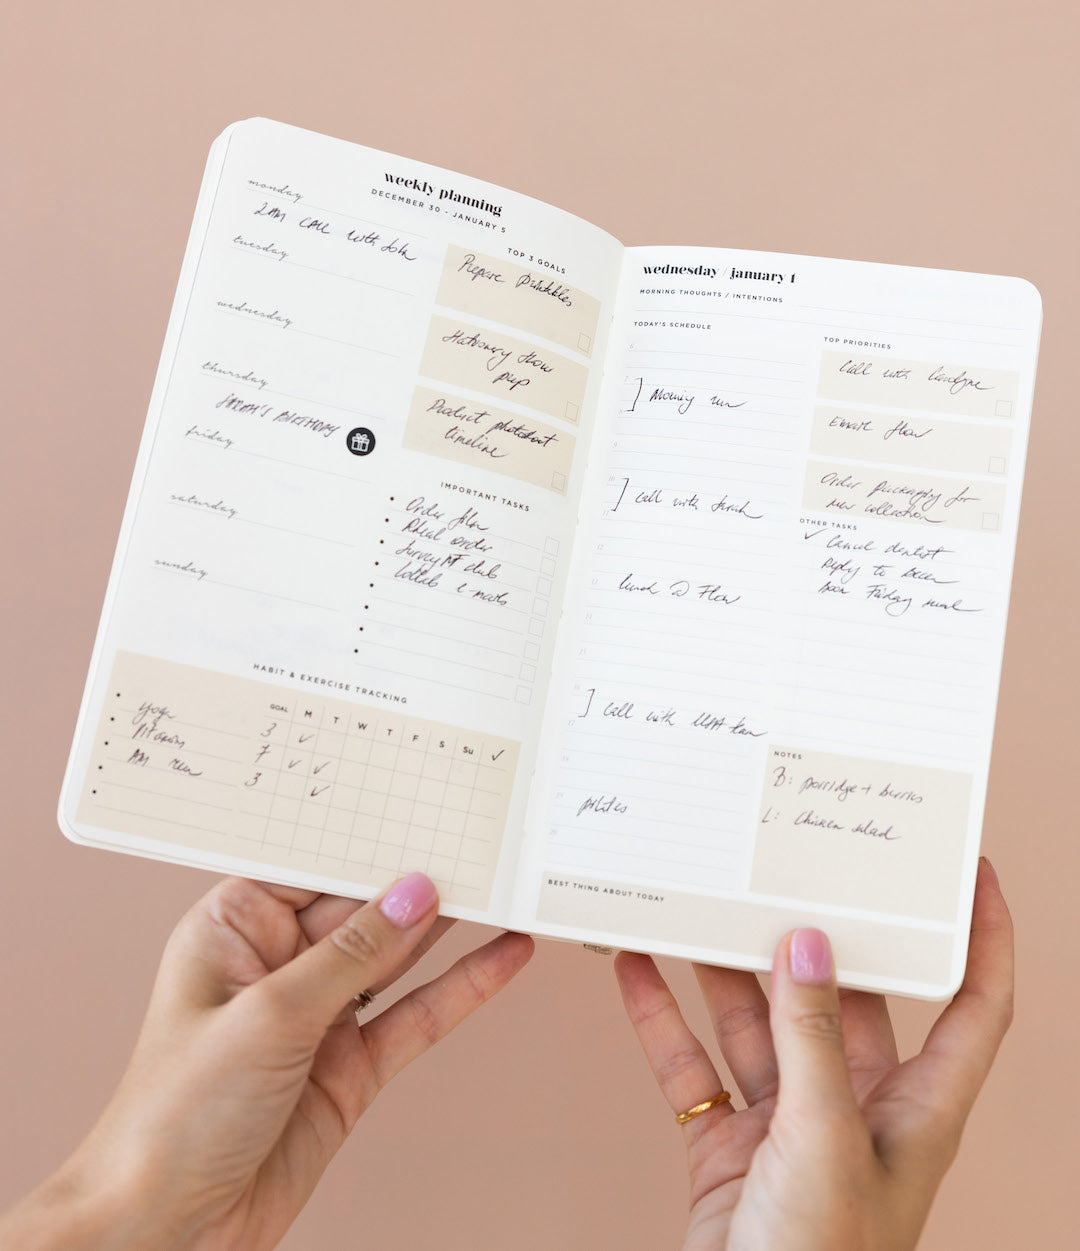 weekly planning
DECEMBER 30 - JANUARY 5
monday
2AM CALL with John
tuesday
wednesday
thursday
SARAH'S BIRTHDAY
friday
saturday
sunday
TOP 3 GOALS
Prepare Printables
Stationery show
prep
Product photoshoot
timeline
IMPORTANT TASKS
Order film
order
Survey club
Collab e-mails
HABIT & EXERCISE TRACKING
GOAL M T W T F S Su ✓
yoga 3 ✓
Vitamins 7 ✓ ✓
AM run 3 ✓
wednesday / january 1
MORNING THOUGHTS / INTENTIONS
TODAY'S SCHEDULE
6
7
Morning run
8
9
10
call with Sarah
11
12
13
lunch @ Flow
14
15
16
call with team
17
18
19
pilates
20
TOP PRIORITIES
Call with
Email flow
Order packaging for
new collection
OTHER TASKS
✓ Cancel dentist
Reply to
Book Friday
NOTES
B: porridge + berries
L: Chicken salad
BEST THING ABOUT TODAY